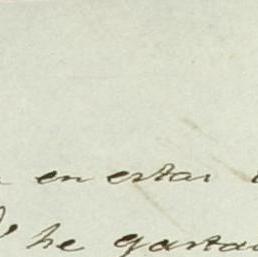 en estas
he gasta